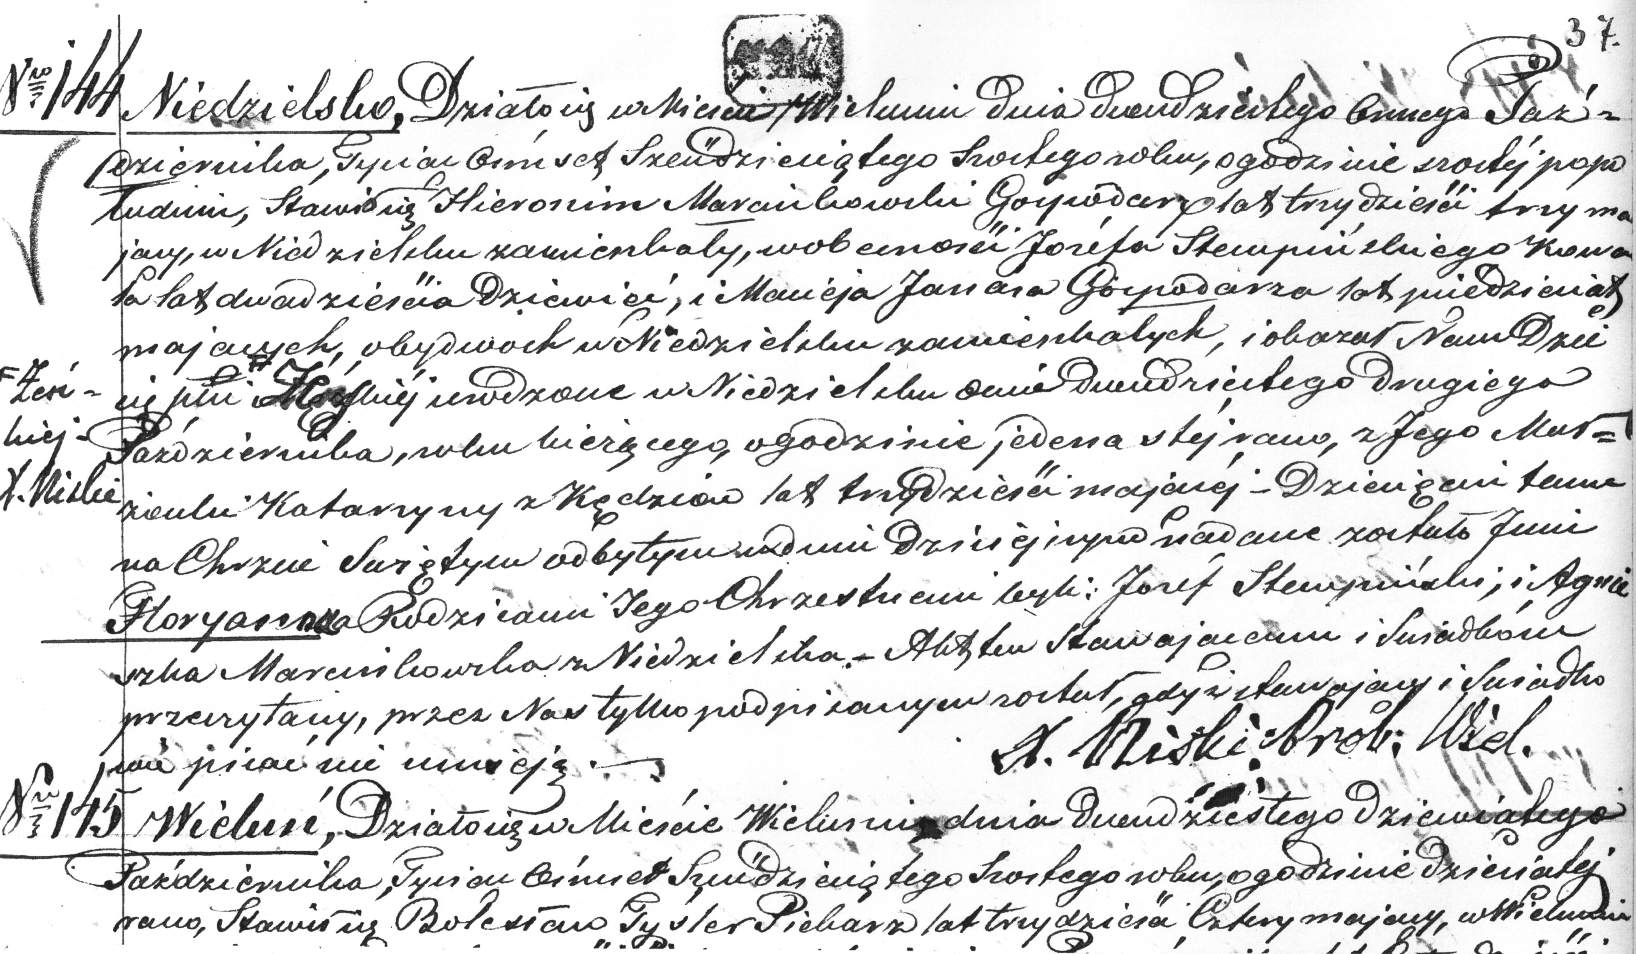 37.
Nro 144 Niedzielsko, Działo się w Mieście Wieluniu dnia dwudziestego ósmego Paź-
dziernika, Tysiąc Ośmset Sześdziesiątego Szóstego roku, o godzinie szóstej popo
łudniu, Stawił się Hieronim Marcinkowski Gospodarz lat trzydzieści trzy ma
jący, w Niedzielsku zamieszkały, w obecności Józefa Stempińskiego Kowa
la lat dwadzieścia dziewięć, i Macieja Janasa Gospodarza lat pięćdziesiąt
mających, obydwóch w Niedzielsku zamieszkałych, i okazał Nam Dzie
cię płci # urodzone w Niedzielsku dnia dwudziestego drugiego
# Żeń-
skiej
X. Niski
Października, roku bieżącego, o godzinie jedenastej rano, z Jego Mał=
żonki Katarzyny z Kędziów lat trzydzieści mającej - Dziecięciu temu
na Chrzcie Świętym odbytym w dniu dzisiejszym nadane zostało Imie
Floryanna Rodzicami Jego Chrzestnemi byli: Józef Stempiński, i Agnie
szka Marcinkowska z Niedzielska. - Akt ten Stawającemu i Świadkom
przeczytany, przez Nas tylko podpisanym został, gdyż stawający i Świadko
wie pisać nie umieją. -
X. Niski Prob: Wiel.
Nro 145 Wieluń, Działo się w Mieście Wieluniu dnia dwudziestego dziewiątego
Października, Tysiąc Ośmset Sześdziesiątego Szóstego roku, o godzinie dziesiątej
rano, Stawił się Bolesław Tysler Piekarz lat trzydzieści Cztery mający, w Wieluniu